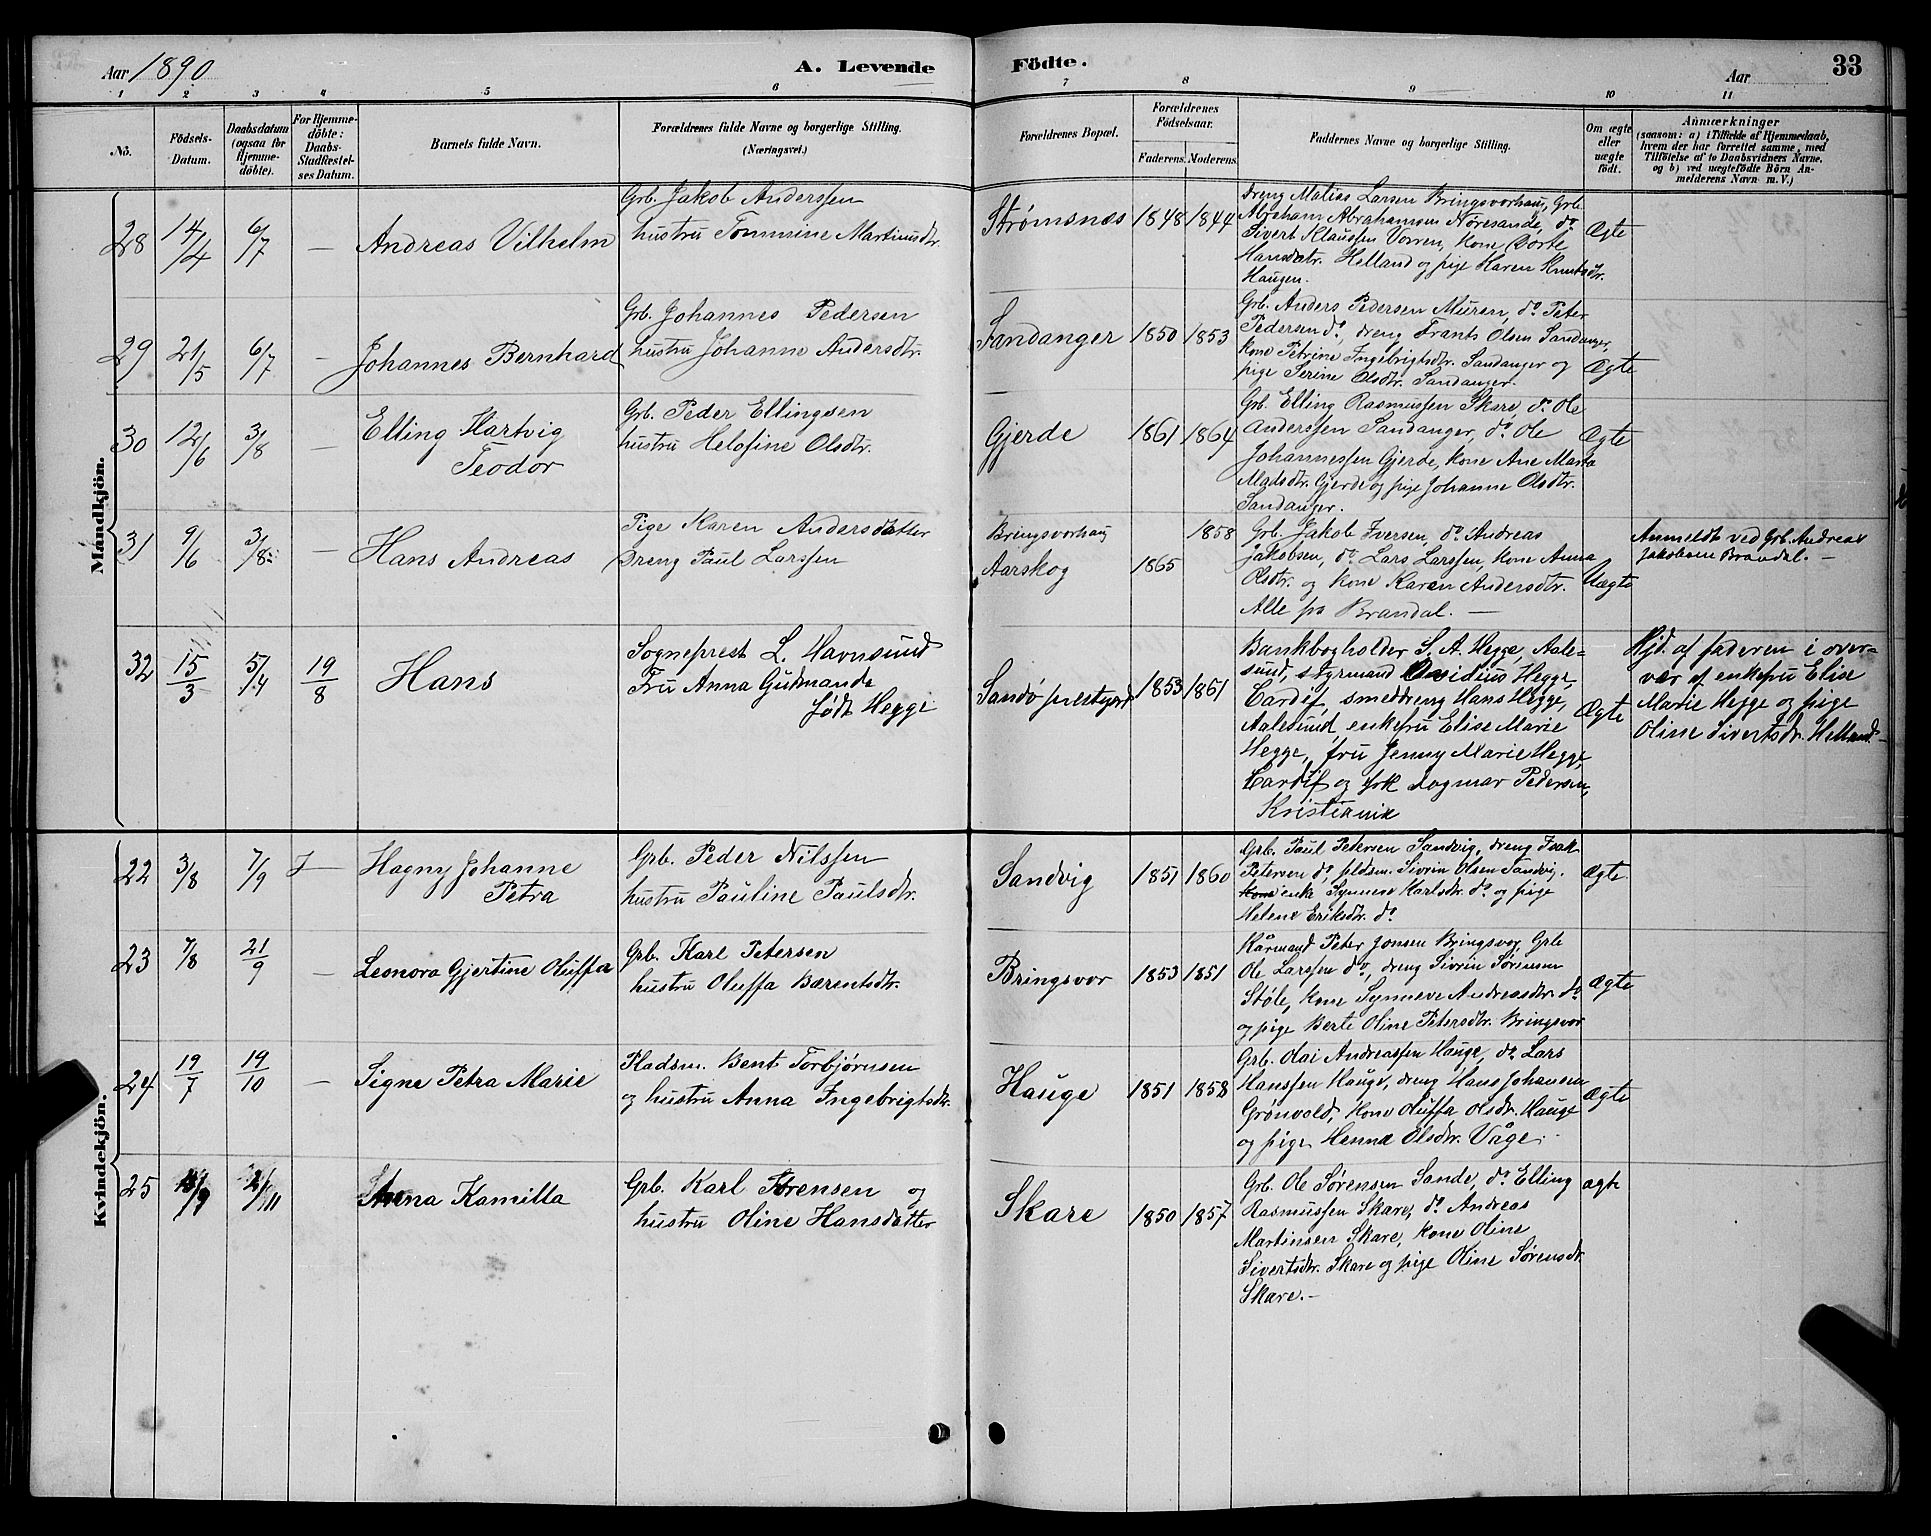 Aar 1890.
A. Levende
Födte.
Aar
33
1
2
3
4
5
6
7
8
9
10
11
No.
Födsels-
Datum.
Daabsdatum
(ogsaa for
Hjemme-
döbte).
For Hjemme-
döbte:
Daabs-
Stadfæstel-
ses Datum.
Barnets fulde Navn.
Forældrenes fulde Navne og borgerlige Stilling.
(Næringsvei.)
Forældrenes Bopæl.
Forældrenes
Födselsaar.
Faderens.
Moderens.
Faddernes Navne og borgerlige Stilling.
Om ægte
eller
uægte
födt.
Anmærkninger
(saasom: a) i Tilfælde af Hjemmedaab,
hvem der har forrettet samme, med
Tilföielse af to Daabsvidners Navne.
og b) ved uægtefödte Börn An-
melderens Navn m. V.)
Mandkjön.
28
14/4
6/7
—
Andreas Vilhelm
Grb. Jakob Anderssen
hustru Tommine Martinusdtr.
Strømsnes
1848
1844
dreng Matias Larsen Bringsvorhaug, Grb.
Abraham Abrahamsen Nøresande, do
Sivert Klaussen Vorren, kone Dorte
Hansdtr. Helland og pige Haren Knutsdtr.
Haugen.
Ægte
29
21/5
6/7
—
Johannes Bernhard
Grb. Johannes Pedersen
hustru Johanne Andersdtr.
Sandanger
1850
1853
Grb. Anders Pedersen Muren, do Peter
Pedersen do, dreng Frants Olsen Sandanger,
kone Petrine Ingebrigtsdtr. Sandanger og
pige Serine Olsdtr. Sandanger.
Ægte
30
12/6
3/8
—
Elling Hartvig
Teodor
Grb. Peder Ellingsen
hustru Helofine Olsdtr.
Gjerde
1861
1864
Grb. Elling Rasmussen Skare, do Ole
Anderssen Sandanger, do Ole
Johannessen Gjerde, kone Ane Marta
Madsdtr. Gjerde og pige Johanne Olsdtr.
Sandanger.
Ægte
31
9/6
3/8
—
Hans Andreas
Pige Karen Andersdatter
Dreng Paul Larssen
Bringsvorhaug
Aarskog
1865
1858
Grb. Jakob Iversen, do Andreas
Jakobsen, do Lars Larssen, kone Anna
Olsdtr. og kone Karen Andersdtr.
Alle på Brandal. —
Uægte
Anmeldt ved Grb. Andreas
Jakobsen Brandal. —
32
15/3
5/4
19/8
Hans
Sogneprest L. Havnsund
Fru Anna Gudmande
født Hegge
Sandø prestegård
1853
1861
Bankbogholder S. A. Hegge, Aale-
sund, styrmand Ovidius Hegge,
Cardif, smeddreng Hans Hegge,
Aalesund, enkefru Elise Marie
Hegge, fru Jenny Marie Hegge,
Cardif og frk Dagmar Pedersen,
Kristiania
Ægte
Hjd. af faderen i over-
vær af enkefru Elise
Marie Hegge og pige
Oline Sivertsdr. Helland —
Kvindekjön.
22
3/8
7/9
Hagny Johanne
Petra
Grb. Peder Nilssen
hustru Pauline Paulsdtr.
Sandvig
1851
1860
Grb. Paul Petersen Sandvig, dreng Isak
Petersen do, pldsm. Sivrin Olsen Sandvig.
kone enke Synneve Karlsdtr. do og pige
Helene Eriksdtr. do
Ægte
23
7/8
21/9
—
Leonora Gjertine Oluffa
Grb. Karl Petersen
hustru Oluffa Bærentsdtr.
Bringsvor
1853
1851
Kårmand Peter Jonsen Bringsvor, Grb
Ole Larssen do, dreng Sivrin Sørensen
Støle, kone Synneve Andreasdtr. do
og pige Berte Oline Petersdtr. Bringsvor
Ægte
24
19/7
19/10
—
Signe Petra Marie
Pladsm. Bent Torbjørnsen
og hustru Anna Ingebrigtsdtr.
Hauge
1851
1858
Grb. Olai Andreassen Hauge, do Lars
Hanssen Hauge, dreng Hans Johansen
Grønvold, kone Oluffa Olsdtr. Hauge
og pige Hanna Olsdtr. Våge.
Ægte
25
2/11
Anna Kamilla
Grb. Karl Sørensen og
hustru Oline Hansdatter
Skare
1850
1857
Grb. Ole Sørensen Sande, do Elling
Rasmussen Skare, do Andreas
Martinsen Skare, kone Oline
Sivertsdtr. Skare og pige Oline Sørensdr.
Skare. —
ægte